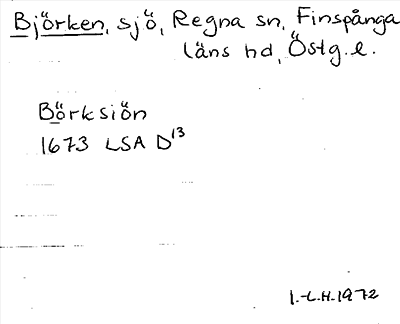 Björken, sjö, Regna sn, Finspånga
läns hd, Östg.l.
Börksiön
1673 LSA D13
I.-L.H.1972